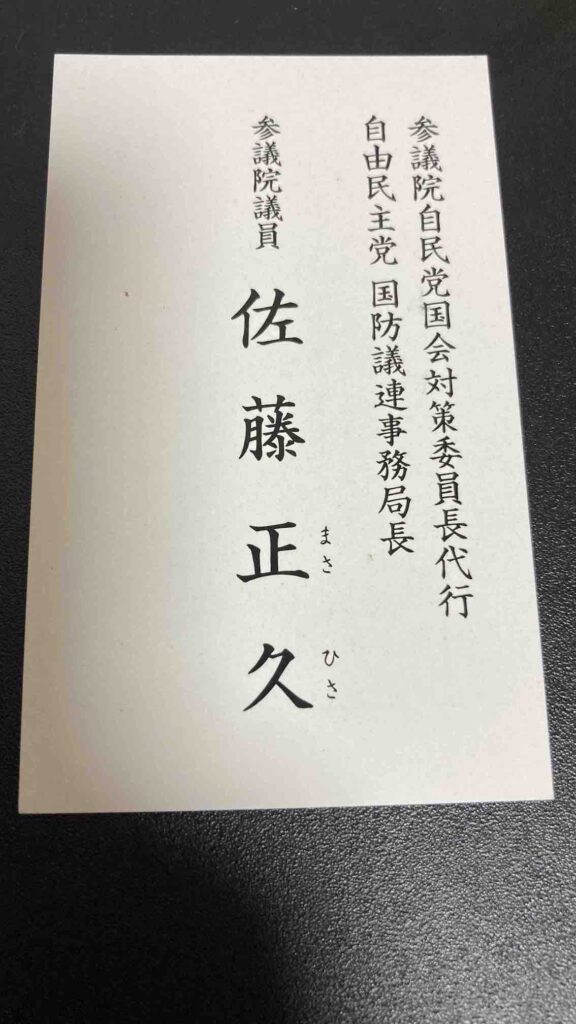 参議院自民党国会対策委員長代行
自由民主党 国防議連事務局長
参議院議員 佐藤正久
まさ ひさ